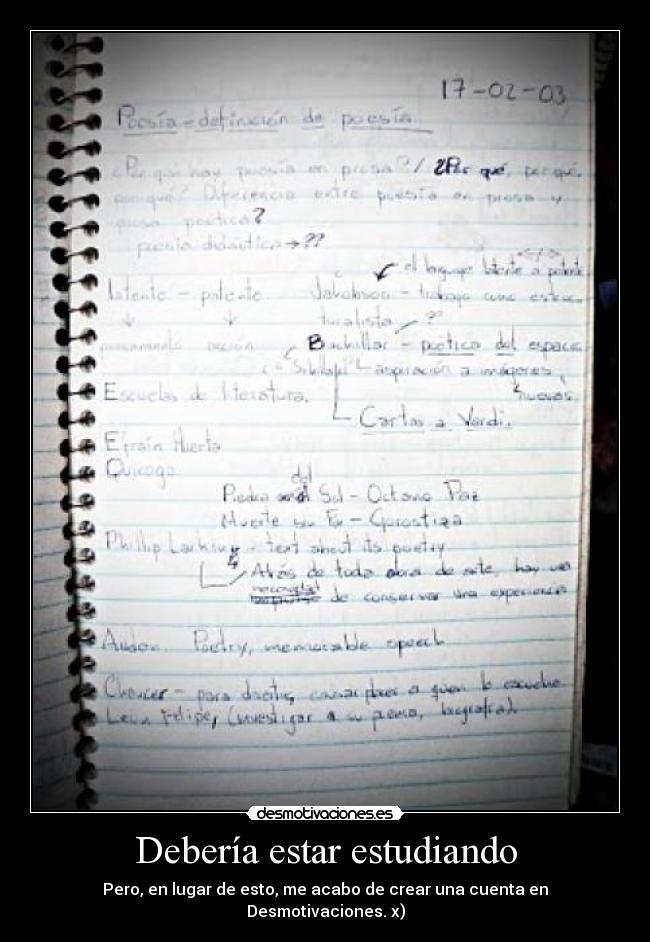 17-02-03
Poesía - definición de poesía
¿Por qué hay poesía en prosa? / ¿Por qué, por qué,
por qué? Diferencia entre poesía en prosa y
prosa poética?
poesía didáctica → ??
el lenguaje latente a patente
latente - patente Jakobson - trabajo como estruc-
↓ ↓ turalista ?
pensamiento acción Bachillar - poética del espacio
aspiración a imágenes
Escuelas de literatura. nuevas
Cartas a Verdi.
Efraín Huerta
Quiroga del
Piedra Sol - Octavio Paz
Muerte sin Fin - Gorostiza
Phillip Larking - text about its poetry
Atrás de toda obra de arte, hay una
necesidad
de conservar una experiencia
Auden. Poetry, memorable speech
Choucer - para causar placer a quien lo escuche
León Felipe, (investigar a su poema, biografía).
desmotivaciones.es
Debería estar estudiando
Pero, en lugar de esto, me acabo de crear una cuenta en
Desmotivaciones. x)